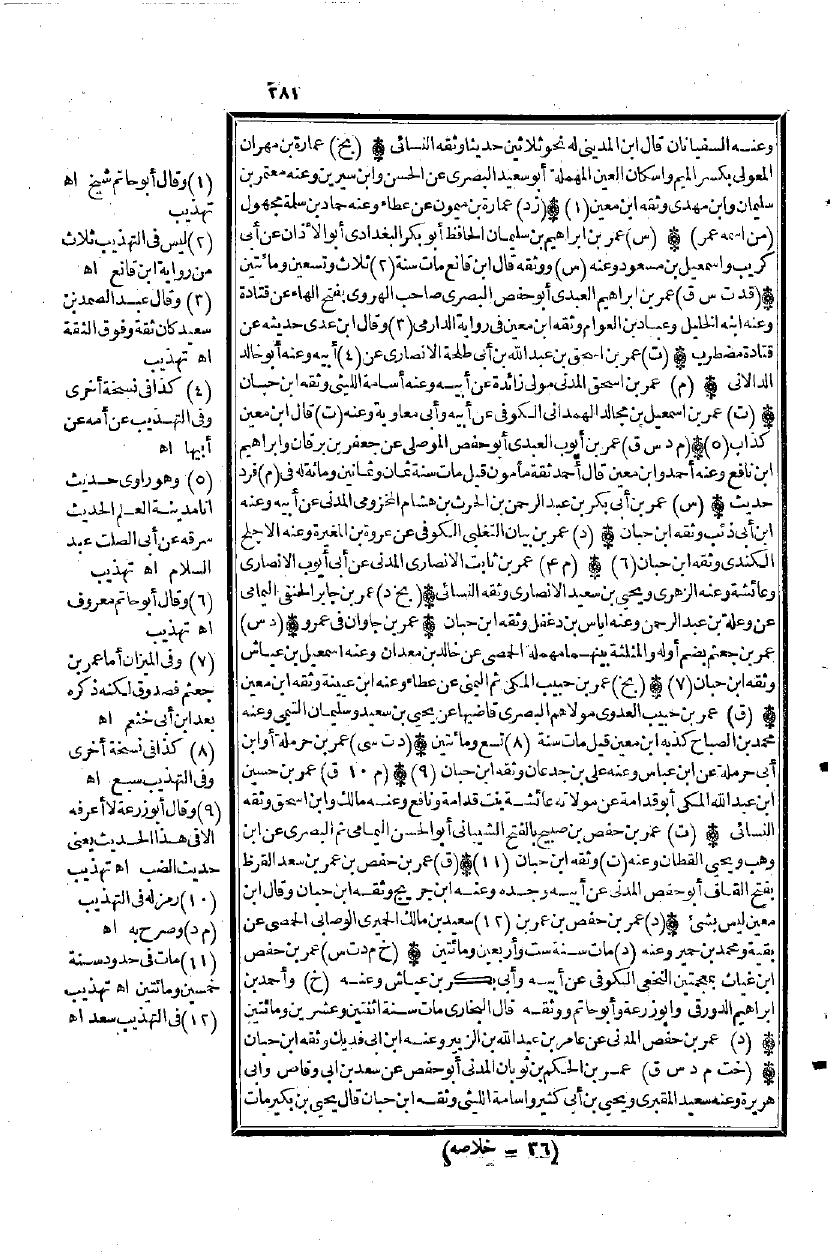 ٢٨١
وعنه السفيانان قال ابن المدينى له نحو ثلاثين حديثا وثقه النسائى ۞ (بخ) عمارة بن مهران
المعولى بكسر الميم واسكان العين المهملة أبو سعيد البصرى عن الحسن وابن سيرين وعنه معتمر بن
سليمان وابن مهدى وثقه ابن معين (١) ۞ (زد) عمارة بن ميمون عن عطاء وعنه حماد بن سلمة مجهول
(من اسمه عمر) ۞ (س) عمر بن ابراهيم بن سليمان الحافظ أبو بكر البغدادى أبو الاذان عن أبى
كريب واسمعيل بن مسعود وعنه (س) ووثقه قال ابن قانع مات سنة (٢) ثلاث وتسعين ومائتين
۞ (قد ت س ق) عمر بن ابراهيم العبدى أبو حفص البصرى صاحب الهروى بفتح الهاء عن قتادة
وعنه ابنه الخليل وعباد بن العوام وثقه ابن معين فى رواية الدارمى (٣) وقال ابن عدى حديثه عن
قتادة مضطرب ۞ (ت) عمر بن اسحق بن عبد الله بن أبى طلحة الانصارى عن (٤) أبيه وعنه أبو خالد
الدالانى ۞ (م) عمر بن اسحق المدنى مولى زائدة عن أبيه وعنه أسامة الليثى وثقه ابن حبان
۞ (ت) عمر بن اسمعيل بن مجالد الهمدانى الكوفى عن أبيه وأبى معاوية وعنه (ت) قال ابن معين
كذاب (٥) ۞ (م د س ق) عمر بن أيوب العبدى أبو حفص الموصلى عن جعفر بن برقان وابراهيم
ابن نافع وعنه أحمد وابن معين قال أحمد ثقة مأمون قيل مات سنة ثمان وثمانين ومائة له فى (م) فرد
حديث ۞ (س) عمر بن أبى بكر بن عبد الرحمن بن الحرث بن هشام المخزومى المدنى عن أبيه وعنه
ابن أبى ذئب وثقه ابن حبان ۞ (د) عمر بن بيان التغلبى الكوفى عن عروة بن المغيرة وعنه الاجلح
الكندى وثقه ابن حبان (٦) ۞ (م ٤) عمر بن ثابت الانصارى المدنى عن أبى أيوب الانصارى
وعائشة وعنه الزهرى ويحيى بن سعيد الانصارى وثقه النسائى ۞ (بخ د) عمر بن جابر الحنفى اليمامى
عن وعلة بن عبد الرحمن وعنه اياس بن دغفل وثقه ابن حبان ۞ عمر بن جاوان فى عمرو ۞ (د س)
عمر بن جعثم بضم أوله والمثلثة بينهما مهملة الحمصى عن خالد بن معدان وعنه اسمعيل بن عياش
وثقه ابن حبان (٧) ۞ (بخ) عمر بن حبيب المكى ثم اليمنى عن عطاء وعنه ابن عيينة وثقه ابن معين
۞ (ق) عمر بن حبيب العدوى مولاهم البصرى قاضيها عن يحيى بن سعيد وسليمان التيمى وعنه
محمد بن الصباح كذبه ابن معين قيل مات سنة (٨) تسع ومائتين ۞ (د ت سى) عمر بن حرملة أو ابن
أبى حرملة عن ابن عباس وعنه على بن جدعان وثقه ابن حبان (٩) ۞ (م ١٠ ق) عمر بن حسين
ابن عبد الله المكى أبو قدامة عن مولاته عائشة بنت قدامة ونافع وعنه مالك وابن اسحق وثقه
النسائى ۞ (ت) عمر بن حفص بن صبيح بالفتح الشيبانى أبو الحسن اليمامى ثم البصرى عن ابن
وهب ويحيى القطان وعنه (ت) وثقه ابن حبان (١١) ۞ (ق) عمر بن حفص بن عمر بن سعد القرظ
بفتح القاف أبو حفص المدنى عن أبيه وجده وعنه ابن جريج وثقه ابن حبان وقال ابن
معين ليس بشئ ۞ (د) عمر بن حفص بن عمر بن (١٢) سعيد بن مالك الحميرى الوصابى الحمصى عن
بقية ومحمد بن حمير وعنه (د) مات سنة ست وأربعين ومائتين ۞ (خ م د ت س) عمر بن حفص
ابن غياث بمعجمتين النخعى الكوفى عن أبيه وأبى بكر بن عياش وعنه (خ) وأحمد بن
ابراهيم الدورقى وابو زرعة وأبو حاتم ووثقه قال البخارى مات سنة اثنتين وعشرين ومائتين
۞ (د) عمر بن حفص المدنى عن عامر بن عبد الله بن الزبير وعنه ابن ابى فديك وثقه ابن حبان
۞ (خت م د س ق) عمر بن الحكم بن ثوبان المدنى أبو حفص عن سعد بن ابى وقاص وابى
هريرة وعنه سعيد المقبرى ويحيى بن أبى كثير واسامة الليثى وثقه ابن حبان قال يحيى بن بكير مات
(١) وقال أبو حاتم شيخ اه
تهذيب
(٢) ليس فى التهذيب ثلاث
من رواية ابن قانع اه
(٣) وقال عبد الصمد بن
سعيد كان ثقة وفوق الثقة
اه تهذيب
(٤) كذا فى نسخة أخرى
وفى التهذيب عن أمه عن
أبيها اه
(٥) وهو راوى حديث
انا مدينة العلم الحديث
سرقه عن أبى الصلت عبد
السلام اه تهذيب
(٦) وقال أبو حاتم معروف
اه تهذيب
(٧) وفى الميزان أما عمر بن
جعثم فصدوق لكنه ذكره
بعد ابن أبى خثعم اه
(٨) كذا فى نسخة أخرى
وفى التهذيب سبع اه
(٩) وقال أبو زرعة لا أعرفه
الا فى هذا الحديث يعنى
حديث الضب اه تهذيب
(١٠) رمز له فى التهذيب
(م د) وصرح به اه
(١١) مات فى حدود سنة
خمسين ومائتين اه تهذيب
(١٢) فى التهذيب سعد اه
(٣٦ - خلاصه)